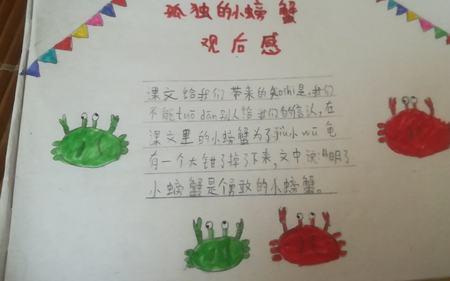 孤独的小螃蟹
观后感
课文给我们带来的qishi是,我们
不能tuō dān别人给我们的信认,在
课文里的小螃蟹为了jiù小wū龟
有一个大钳子掉了下来,文中说明了
小螃蟹是个勇敢的小螃蟹。